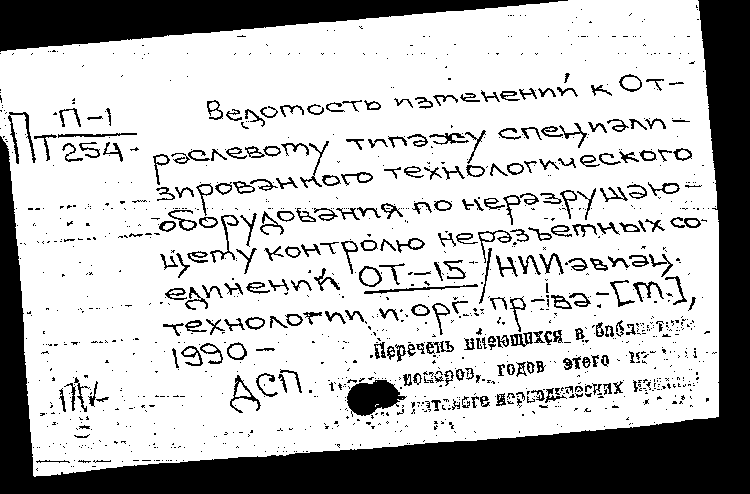 П П-1
Т254-
Ведомость изменений к От-
раслевому типажу специали-
зированного технологического
оборудования по неразрушаю-
щему контролю неразъемных со-
единений ОТ-15 / НИИ авиац.
технологии и орг. пр-ва.-[М.],
1990-
Перечень имеющихся в
ДСП.
номеров, годов этого
в каталоге периодических